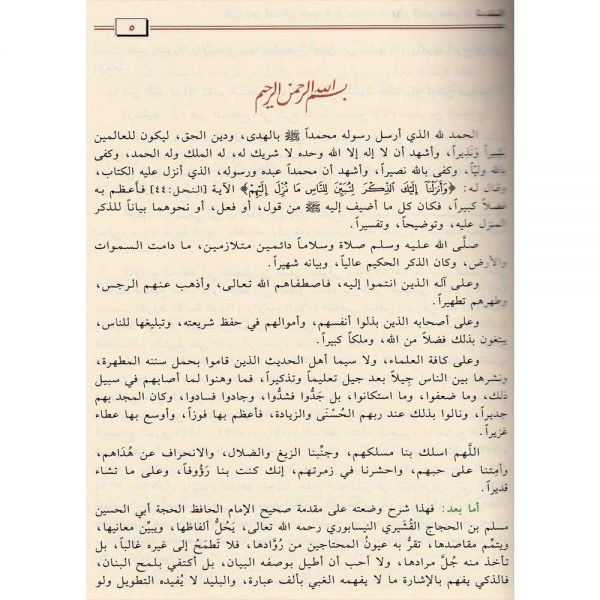 ٥
بسم الله الرحمن الرحيم
الحمد لله الذي أرسل رسوله محمداً ﷺ بالهدى، ودين الحق، ليكون للعالمين
بشيراً وَنَذيراً، وأشهد أن لا إله إلا الله وحده لا شريك له، له الملك وله الحمد، وكفى
بالله وليّاً، وكفى بالله نصيراً، وأشهد أن محمداً عبده ورسوله، الذي أنزل عليه الكتاب،
وقال له: ﴿وَأَنزَلْنَآ إِلَيْكَ الذِّكْرَ لِتُبَيِّنَ لِلنَّاسِ مَا نُزِّلَ إِلَيْهِمْ﴾ الآية [النحل: ٤٤] فأعظم به
فضلاً كبيراً، فكان كل ما أضيف إليه ﷺ من قول، أو فعل، أو نحوهما بياناً للذكر
المنزل عليه، وتوضيحاً، وتفسيراً.
صلَّى الله عليه وسلم صلاة وسلاماً دائمين متلازمين، ما دامت السموات
والأرض، وكان الذكر الحكيم عالياً، وبيانه شهيراً.
وعلى آله الذين انتموا إليه، فاصطفاهم الله تعالى، وأذهب عنهم الرجس،
وطهرهم تطهيراً.
وعلى أصحابه الذين بذلوا أنفسهم، وأموالهم في حفظ شريعته، وتبليغها للناس،
يبتغون بذلك فضلاً من الله، وملكاً كبيراً.
وعلى كافة العلماء، ولا سيما أهل الحديث الذين قاموا بحمل سننه المطهرة،
ونشرها بين الناس جِيلاً بعد جيل تعليماً وتذكيراً، فما وهنوا لما أصابهم في سبيل
ذلك، وما ضعفوا، وما استكانوا، بل جَدُّوا فشدُّوا، وجادوا فسادوا، وكان المجد بهم
جديراً، ونالوا بذلك عند ربهم الحُسْنَى والزيادة، فأعظم بها فوزاً، وأوسع بها عطاء
غزيراً.
اللَّهم اسلك بنا مسلكهم، وجنِّبنا الزيغ والضلال، والانحراف عن هُدَاهم،
وأمِتنا على حبهم، واحشرنا في زمرتهم، إنك كنت بنا رَؤُوفاً، وعلى ما تشاء
قديراً.
أما بعد: فهذا شرح وضعته على مقدمة صحيح الإمام الحافظ الحجة أبي الحسين
مسلم بن الحجاج القُشَيري النيسابوري رحمه الله تعالى، يَحُلُّ ألفاظها، ويبيِّن معانيها،
ويتمِّم مقاصدها، تقرُّ به عيونُ المحتاجين من رُوَّادها، فلا تَطمَحُ إلى غيره غالباً، بل
تأخذ منه جُلَّ مرادها، ولا أحب أن أطيل بوصفه البيان، بل أكتفي بلمح البنان،
فالذكي يفهم بالإشارة ما لا يفهمه الغبي بألف عبارة، والبليد لا يُفيده التطويل ولو